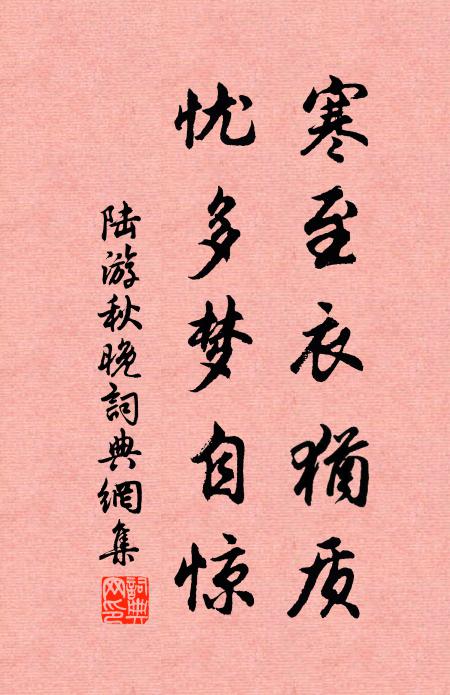 寒至衣犹质
忧多梦自惊
陆游秋晚詞典網集
詞典网印